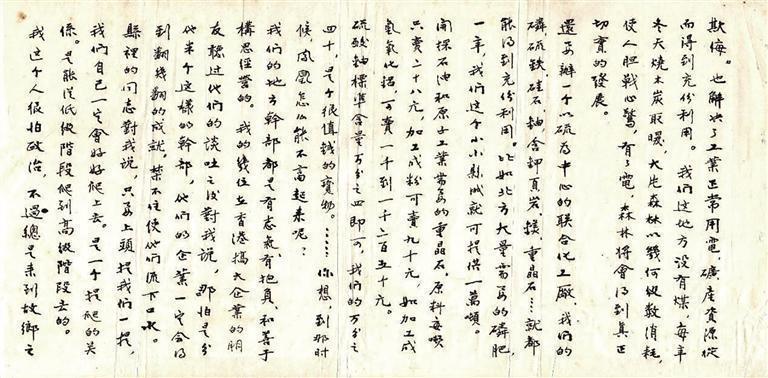 欺侮。也解决了工業正常用電，礦產資源從
而得到充份利用。我們这地方没有煤，每年
冬天燒木炭取暖，大片森林以幾何級数消耗，
使人胆戰心驚，有了電，森林將會得到真正
切實的發展。
還要辦一个以硫为中心的联合化工廠，我們的
磷硫鉄硅石、鈾、含鉀頁岩、重晶石…就都
能得到充份利用。比如北方大量需要的磷肥
一年，我們这个小小縣城就可提供一萬噸。
開採石油和原子工業需要的重晶石，原料每噸
只賣二十八元，加工成粉可賣九十元，如加工成
氧氧化鋇，可賣一千到一千二百五十元。
硫酸鈾標準含量万分之四即可，我們的万分之
四十，是个很值錢的寶物。……你想，到那时
候，鳳凰怎么能不富起来呢？
我們的地方幹部都是有志氣、有抱負、和善于
構思經營的。我的幾位在香港搞大企業的朋
友聽过他們的談吐之後對我說，那怕是分
他半个这樣的幹部，他們的企業一定会得
到翻幾翻的成就，禁不住使他們流下口水。
縣裡的同志對我說，只要上頭提我們一提，
我們自己一定會好好爬上去。是一个提爬的关
係。是能従低級階段爬到高級階段去的。
我这个人很怕政治，不過總是来到故鄉之